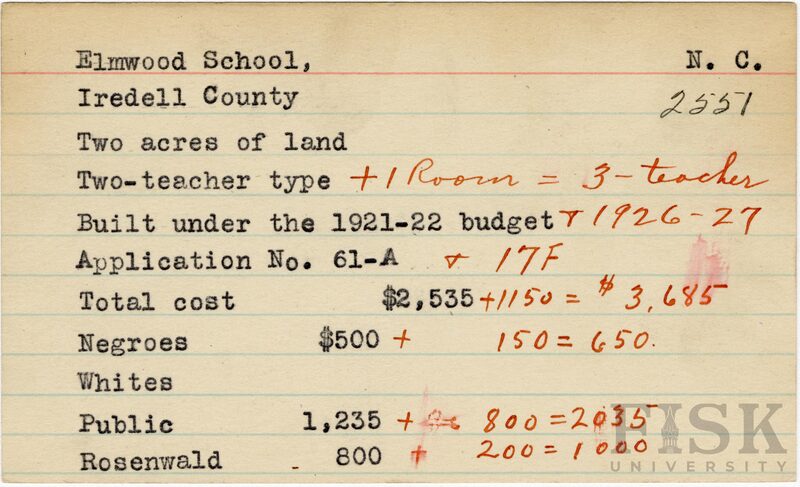 Elmwood School, N. C.
Iredell County 2551
Two acres of land
Two-teacher type + 1 Room = 3-teacher
Built under the 1921-22 budget & 1926-27
Application No. 61-A & 17F
Total cost $2,535 + 1150 = $3,685
Negroes $500 + 150 = 650.
Whites
Public 1,235 + 800 = 2035
Rosenwald 800 + 200 = 1000
FISK
UNIVERSITY